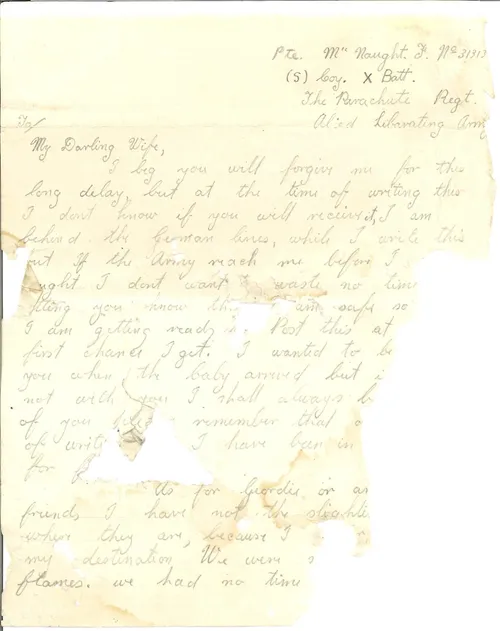 Pte. Mc Naught. J. No 31313
(S) Coy. X Batt.
The Parachute Regt.
Alied Liberating Army
To/
My Darling Wife,
I beg you will forgive me for this
long delay, but at the time of writing this
I dont know if you will receive it, I am
behind the German lines, while I write this
but if the Army reach me before I
I dont want to waste no time
you know am safe so
I am getting ready Post this at
first chance I get. I wanted to be
you when the baby arrived but
not with you I shall always
of you remember that
of I have been in
for
As for Geordie or
friends I have not the
where they are, because I
my destination We were
flames. we had no time